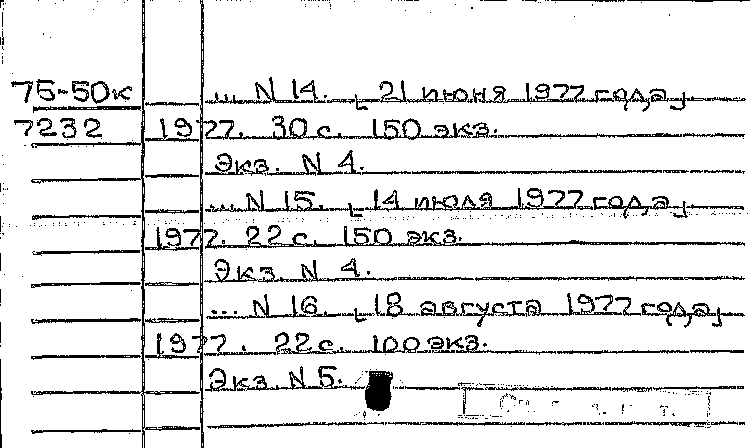 75-50к ... N 14. [21 июня 1977 года].
7232 1977. 30 с. 150 экз.
Экз. N 4.
... N 15. [14 июля 1977 года].
1977. 22 с. 150 экз.
Экз. N 4.
... N 16. [18 августа 1977 года].
1977. 22 с. 100 экз.
Экз. N 5.